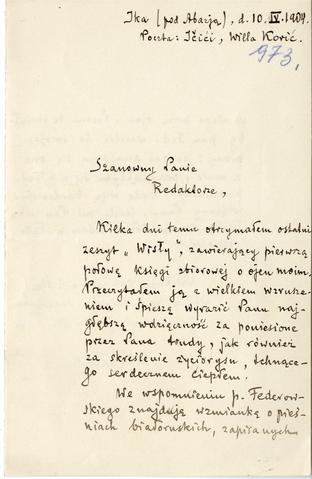 Ika (pod Abazją), d. 10. IV. 1904.
Poczta: Ičići, Willa Korić.
973.
Szanowny Panie
Redaktorze,
Kilka dni temu otrzymałem ostatni
zeszyt „Wisły", zawierający pierwszą
połowę księgi zbiorowej o ojcu moim.
Przeczytałem ją z wielkiem wzrusze-
niem i śpieszę wyrazić Panu naj-
głębszą wdzięczność za poniesione
przez Pana trudy, jak również
za skreślenie życiorysu, tchnące-
go serdecznem ciepłem.
We wspomnieniu p. Federow-
skiego znajduję wzmiankę o pieś-
niach białoruskich, zapisanych